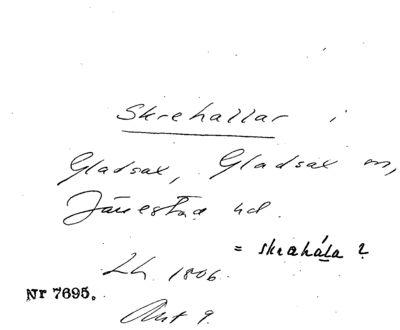 Skrehallar i
Gladsax, Gladsax sn,
Järrestad hd.
= skrahála ?
Lh 1806.
Nr 7695.
Akt 9.